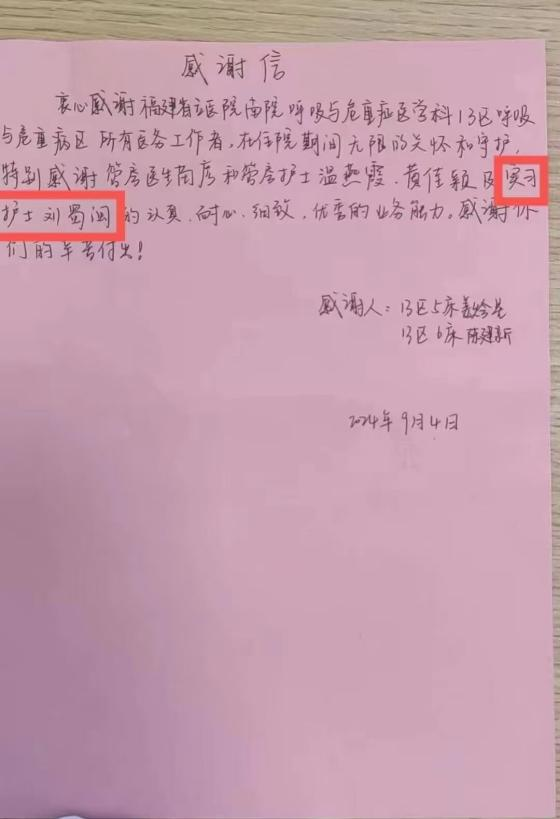 感谢信
衷心感谢福建省立医院南院呼吸与危重症医学科13区呼吸
与危重病区所有医务工作者，在住院期间无限的关怀和守护，
特别感谢管房医生南彦和管房护士温燕霞、黄佳颖及实习
护士刘蜀闽的认真、耐心、细致，优秀的业务能力。感谢你
们的辛苦付出！
感谢人：13区5床
13区6床陈建新
2024年9月4日